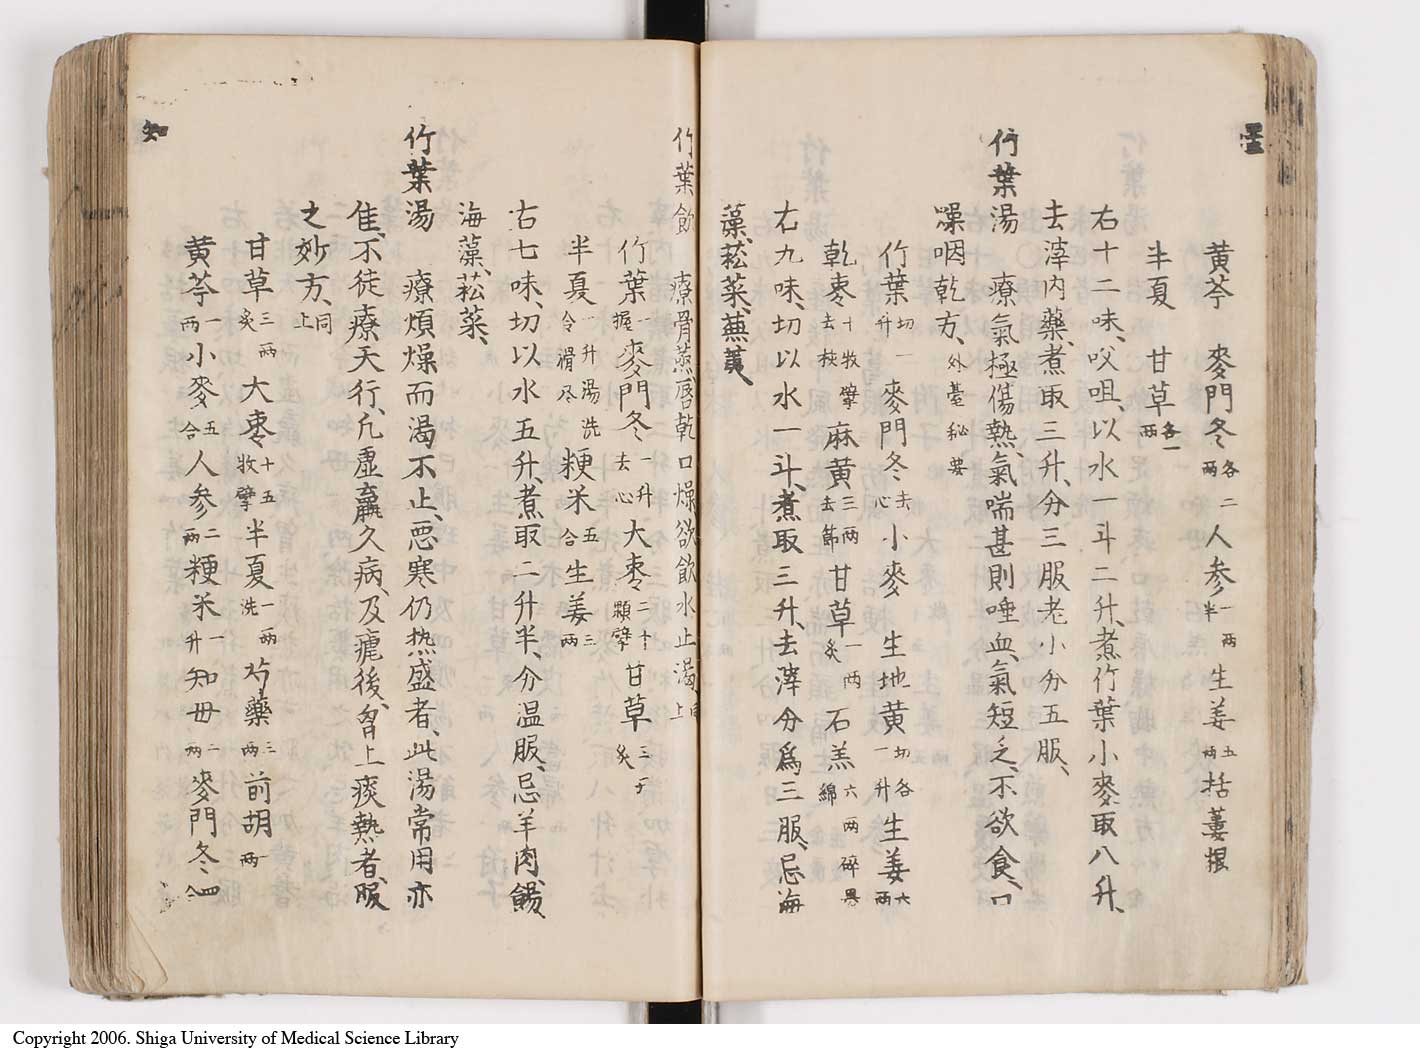 黄芩 麥門冬各二兩 人参一兩半 生姜五兩 括蔞根
半夏 甘草各一兩
右十二味、㕮咀、以水一斗二升、煮竹葉小麥取八升、
去滓内藥、煮取三升、分三服老小分五服、
竹葉湯 療氣極傷熱、氣喘甚則唾血、氣短乏、不欲食、口
噪咽乾方、外臺秘要
竹葉切一升 麥門冬去心 小麥 生地黄切各一升 生姜六兩
乾棗十枚擘去核 麻黄三兩去節 甘草一兩炙 石羔六兩碎綿畏
右九味、切以水一斗、煮取三升、去滓分爲三服、忌海
藻、菘菜、蕪荑
竹葉飲 療骨蒸唇乾口燥欲飲水止渇同上
竹葉一握 麥門冬一升去心 大棗二十顆擘 甘草三寸炙
半夏一升湯洗令滑尽 粳米五合 生姜三兩
右七味、切以水五升、煮取二升半、分温服、忌羊肉、餳、
海藻、菘菜、
竹葉湯 療煩燥而渇不止、惡寒仍热盛者、此湯常用亦
佳、不徒療天行、凡虚羸久病、及瘧後、胷上痰熱者、服
之妙方、同上
甘草三兩炙 大棗十五枚擘 半夏一兩洗 芍藥三兩 前胡一兩
黄芩一兩 小麥五合 人参二兩 粳米一升 知母二兩 麥門冬四合
知
Copyright 2006. Shiga University of Medical Science Library